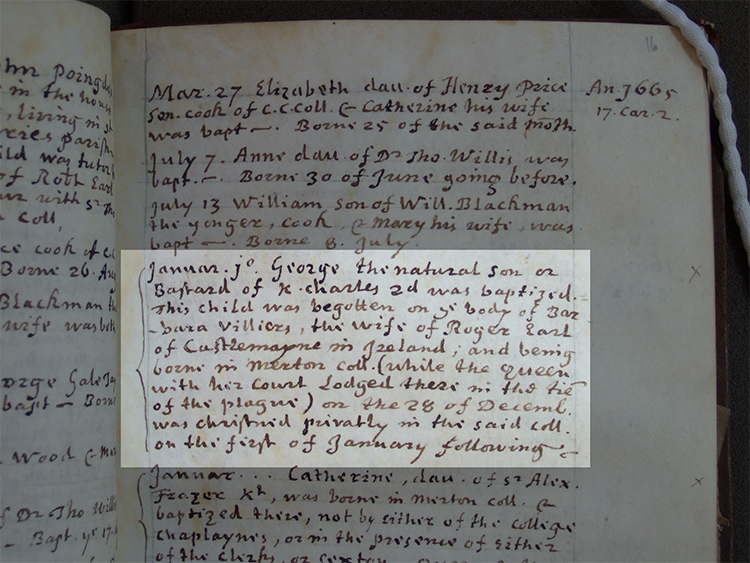 16
Mar. 27 Elizabeth dau. of Henry Price
sen. cook of C.C. Coll. & Catherine his wife
was bapt —. Borne 25 of the said moth.
An. 1665
17. Car. 2.
July 7. Anne dau. of Dr Tho. Willis was
bapt. —. Borne 30 of June going before.
July 13 William son of Will. Blackman
the yonger, cook, & Mary his wife, was
bapt —. Borne 8. July.
Januar. 1o. George the natural son or
Bastard of K. Charles 2d was baptized.
This child was begotten on ye body of Bar
bara Villiers, the wife of Roger Earl
of Castlemayne in Ireland; and being
borne in Merton coll. (while the Queen
with her Court Lodged there in the tie
of the plague) on the 28 of Decemb.
was christned privatly in the said coll.
on the first of January following
x
Januar... Catherine, dau. of Sr Alex.
Frazer Kt, was borne in Merton coll. &
baptized there, not by either of the college
chaplaynes, or in the presence of either
of the Clerks, or sexton
x
ohn Poingde
e in the hous
, living in st
eries parish
ild was tutor
of Robt Earl
ur with Sr Tho
n Coll,
ce cook of C.C
Borne 26. Au
Blackman th
wife was bapt
orge Gale
bapt — Borne
Wood & Ma
f Dr Tho. Willis
— Bapt. ye 17